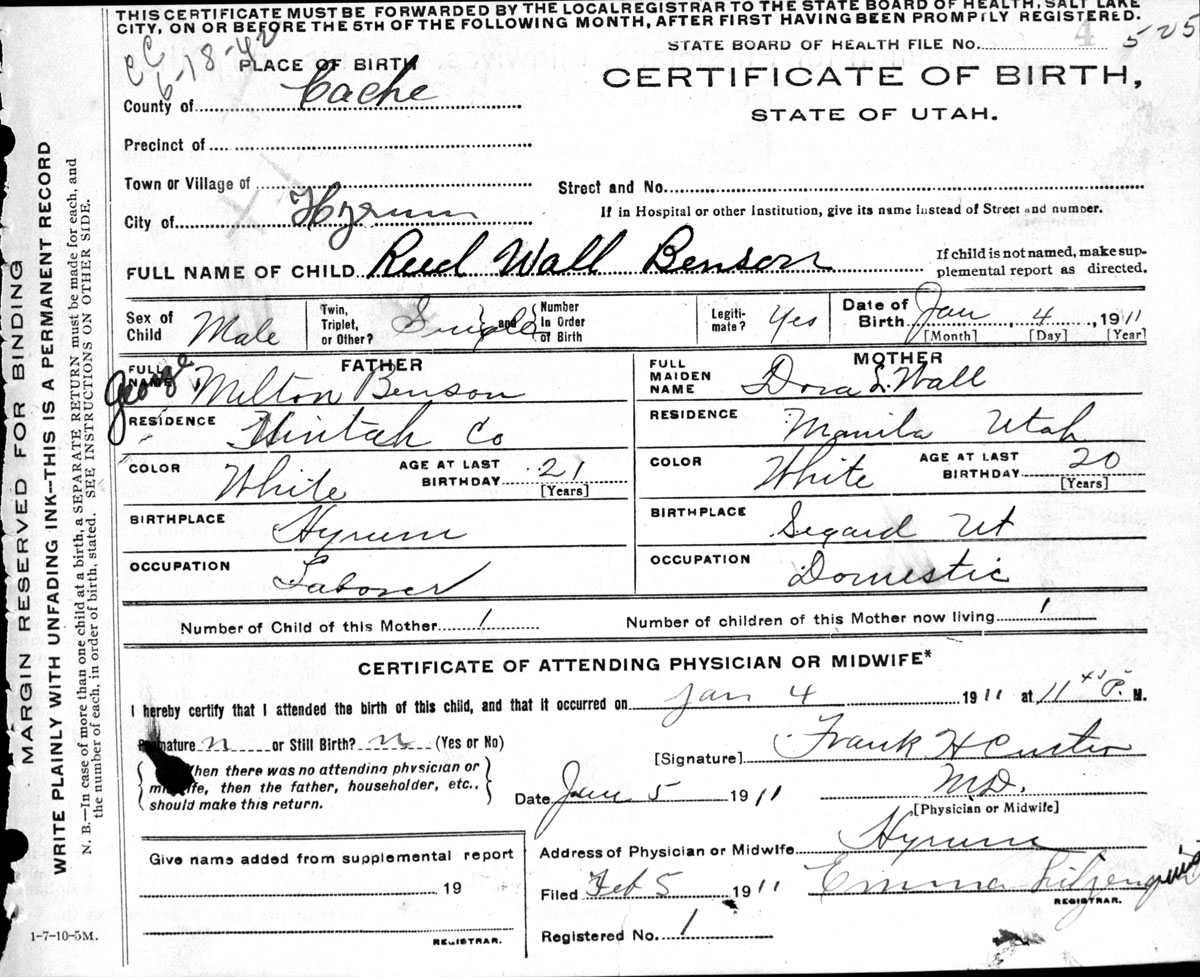 THIS CERTIFICATE MUST BE FORWARDED BY THE LOCAL REGISTRAR TO THE STATE BOARD OF HEALTH, SALT LAKE
CITY, ON OR BEFORE THE 5TH OF THE FOLLOWING MONTH, AFTER FIRST HAVING BEEN PROMPTLY REGISTERED.
6-18-42
STATE BOARD OF HEALTH FILE No. 4 525
PLACE OF BIRTH
County of Cache
CERTIFICATE OF BIRTH,
STATE OF UTAH.
Precinct of
Town or Village of
Street and No.
City of Hyrum
If in Hospital or other Institution, give its name instead of Street and number.
FULL NAME OF CHILD Reed Wall Benson
If child is not named, make sup-
plemental report as directed.
Sex of Child Male
Twin, Triplet, or Other? Single and Number in Order of Birth
Legiti-mate? Yes
Date of Birth Jan, 4, 1911
[Month] [Day] [Year]
FATHER
FULL NAME George Milton Benson
RESIDENCE Uintah Co
COLOR White AGE AT LAST BIRTHDAY 21 [Years]
BIRTHPLACE Hyrum
OCCUPATION Laborer
MOTHER
FULL MAIDEN NAME Dora L. Wall
RESIDENCE Manila Utah
COLOR White AGE AT LAST BIRTHDAY 20 [Years]
BIRTHPLACE Segard Ut
OCCUPATION Domestic
Number of Child of this Mother 1 Number of children of this Mother now living 1
CERTIFICATE OF ATTENDING PHYSICIAN OR MIDWIFE*
I hereby certify that I attended the birth of this child, and that it occurred on Jan 4 1911 at 11 45 P. M.
Premature n or Still Birth? n (Yes or No)
[Signature] Frank H
When there was no attending physician or
midwife, then the father, householder, etc.,
should make this return.
M.D.
Date Jan 5 1911
[Physician or Midwife]
Give name added from supplemental report
19
REGISTRAR.
Address of Physician or Midwife Hyrum
Filed Feb 5 1911 Emma Liljenquist
REGISTRAR.
Registered No. 1
1-7-10-5M.
MARGIN RESERVED FOR BINDING
WRITE PLAINLY WITH UNFADING INK—THIS IS A PERMANENT RECORD
N. B.—In case of more than one child at a birth, a SEPARATE RETURN must be made for each, and
the number of each, in order of birth, stated. SEE INSTRUCTIONS ON OTHER SIDE.